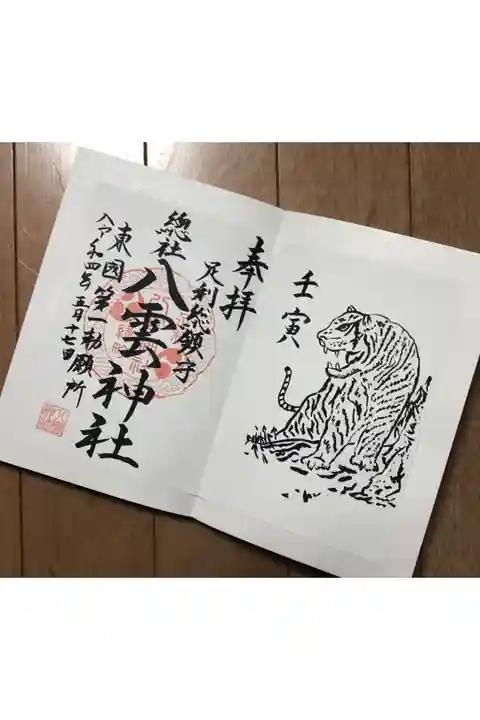 壬寅
奉拝
足利総鎮守
總社
八雲神社
東国第一勅願所
令和四年五月十七日